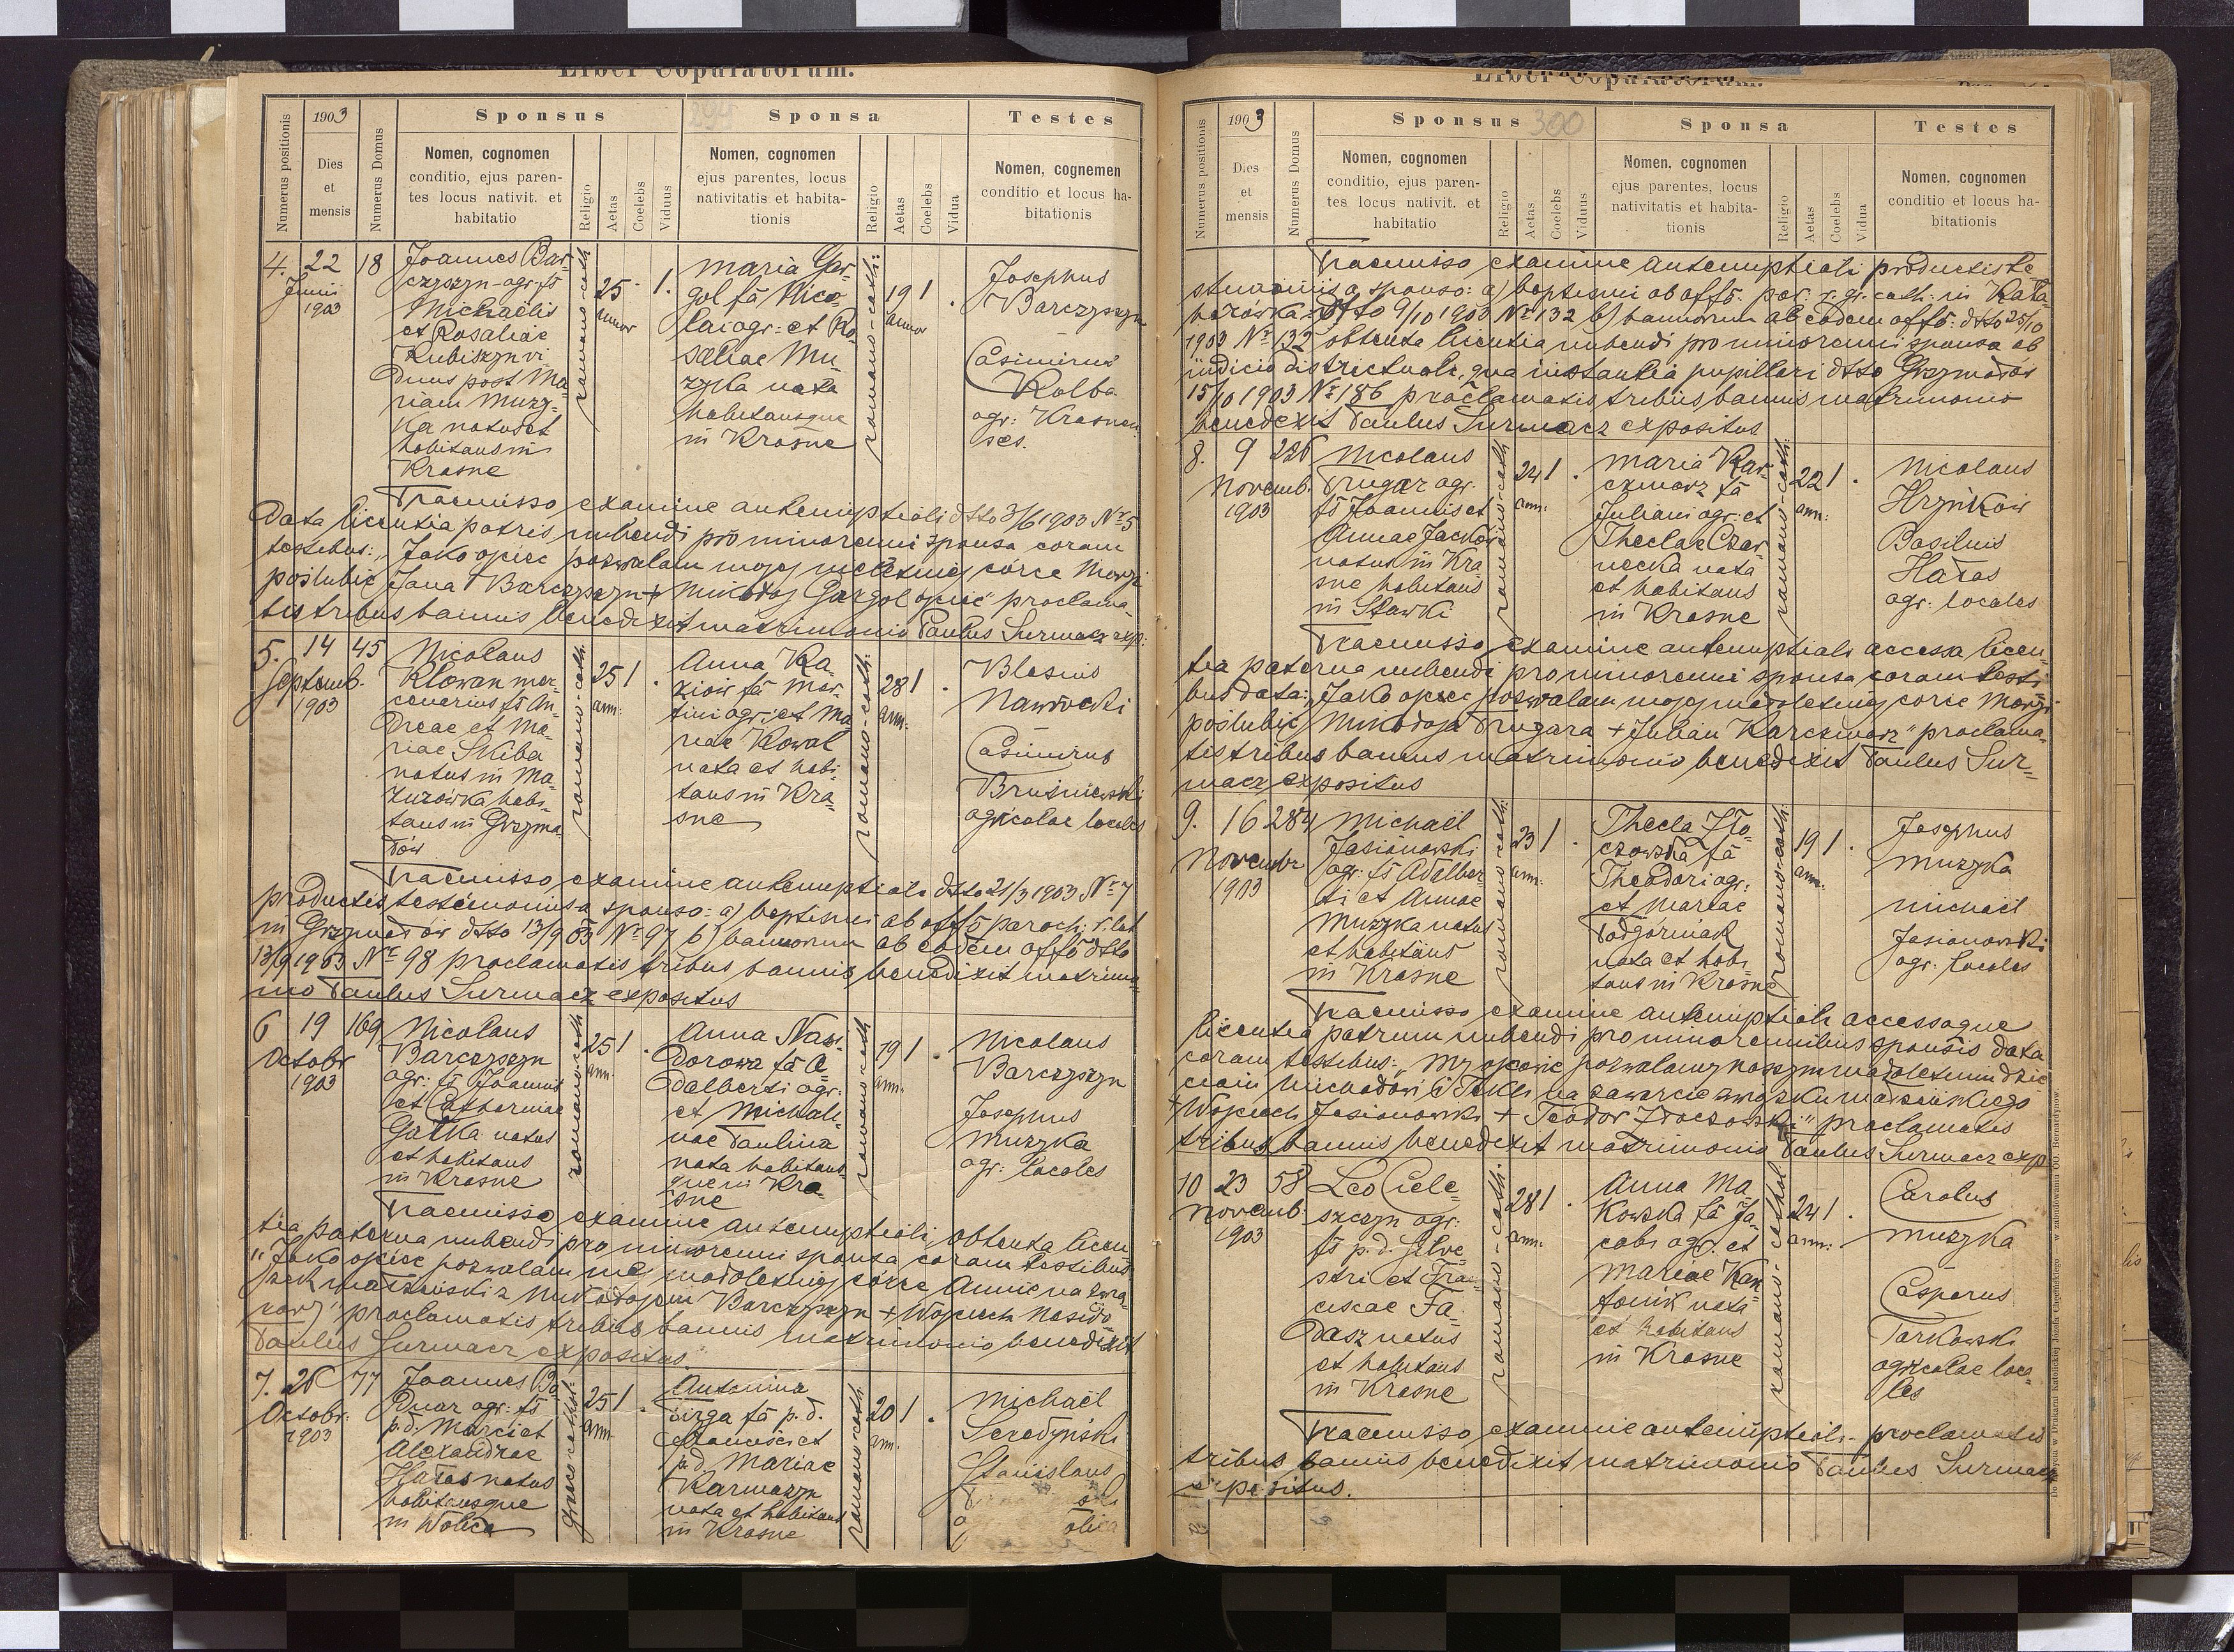 Liber Copulatorum.
Numerus positionis
1903
Dies
et
mensis
Numerus Domus
Sponsus
Nomen, cognomen
conditio, ejus paren-
tes locus nativit. et
habitatio
Religio
Aetas
Coelebs
Viduus
294
Sponsa
Nomen, cognomen
ejus parentes, locus
nativitatis et habita-
tionis
Religio
Aetas
Coelebs
Vidua
Testes
Nomen, cognemen
conditio et locus ha-
bitationis
4. 22 18
Junii
1903
Joannes Bar-
czyszyn agr: fs
Michaëlis
et Rosaliae
Kubiszyn vi
duus post Ma-
riam Muzy-
ka natus et
habitans in
Krasne
romano-cath:
25 1.
annor
Maria Gar-
gol fa Nico-
lai agr: et Ro-
saliae Mu-
zyka nata
habitansque
in Krasne
romano-cath:
19 1.
annor
Josephus
Barczyszyn
Casimirus
Kolba
agr: Krasnen
ses.
Praemisso examine antenuptiali dtto 3/6 1903 Nr 5
Data licentia patris nubendi pro minorenni sponsa coram
testibus: „Jako ojciec pozwalam mojej nieletniej córce Maryi
poślubić Jana Barczyszyn + Mikołaj Gargol ojciec" proclama-
tis tribus bannis benedixit matrimonio Paulus Surmacz exp:
5. 14 45
Septemb.
1903
Nicolaus
Klowan mer-
cenarius fs An-
dreae et Ma-
riae Skiba
natus in Ma-
zurówka habi-
tans in Grzyma-
łów
romano-cath:
25 1.
ann:
Anna Ka-
ziow fa Mar-
tini agr: et Ma
riae Kowal
nata et habi-
tans in Kra-
sne
romano-cath:
28 1.
ann:
Blasius
Nawrocki
Casimirus
Bruśniewski
agricolae locales
Praemisso examine antenuptiali dtto 21/3 1903 Nr 7
productis testimoniis a sponso: a) baptismi ab offo paroch. r. lat
in Grzymałów dtto 13/9 903 Nr 97 b) bannorum ab eodem offo dtto
13/9 1903 Nr 98 proclamatis tribus bannis benedixit matrimo-
nio Paulus Surmacz expositus
6 19 169
Octobr
1903
Nicolaus
Barczyszyn
agr: fs Joannis
et Catharinae
Gałka natus
et habitans
in Krasne
romano-cath
25 1.
ann:
Anna Nasi-
dorowa fa A-
dalberti agr:
et Michali-
nae Paulina
nata habitans
que in Kra-
sne
romano-cath
19 1.
ann:
Nicolaus
Barczyszyn
Josephus
Muzyka
agr: locales
Praemisso examine antenuptiali, obtenta licen-
tia paterna nubendi pro minorenni sponsa coram testibus
„Jako ojciec pozwalam mej małoletniej córce Annie na zwią-
zek małżeński z Mikołajem Barczyszyn + Wojciech Nasido-
rowy" proclamatis tribus bannis matrimonio benedixit
Paulus Surmacz expositus.
7. 26 77
Octobr:
1903
Joannes Bo-
dnar agr: fs
p.d. Marci et
Alexandrae
Hałas natus
habitansque
in Wolica
graeco-cathol:
25 1.
ann
Antonina
Pirga fa p.d.
Francisci et
p.d. Mariae
Karmazyn
nata et habitans
in Krasne
romano-cath:
20 1.
ann.
Michaël
Seredyński
Stanislaus
Liber Copulatorum.
Numerus positionis
1903
Dies
et
mensis
Numerus Domus
Sponsus 300
Nomen, cognomen
conditio, ejus paren-
tes locus nativit. et
habitatio
Religio
Aetas
Coelebs
Viduus
Sponsa
Nomen, cognomen
ejus parentes, locus
nativitatis et habita-
tionis
Religio
Aetas
Coelebs
Vidua
Testes
Nomen, cognomen
conditio et locus ha-
bitationis
Praemisso examine antenuptiali productis te-
stimoniis a sponso: a) baptismi ab offo. par. r. gr. cath: in Kała-
harówka dtto 9/10 1903 Nr 132 b) bannorum ab eodem offo: dtto 25/10
1903 Nr 132 obtenta licentia nubendi pro minorenni sponsa ab
iudicio districtuali, qua instantia pupillari dtto Grzymałów
15/10 1903 Nr 186 proclamatis tribus bannis matrimonio
benedixit Paulus Surmacz expositus
8. 9 226
Novemb.
1903
Nicolaus
Trugar agr.
fs Joannis et
Annae Jacków
natus in Kra
sne habitans
in Sławki
romano-cath
24 1.
ann:
Maria Kar-
czmarz fa
Juliani agr: et
Theclae Czar-
necka nata
et habitans
in Krasne
romano-cath:
22 1.
ann:
Nicolaus
Hrynkow
Basilius
Hałas
agr: locales
Praemisso examine antenuptiali accessa licen-
tia paterna nubendi pro minorenni sponsa coram testi
bus data: „Jako ojciec pozwalam mojej małoletniej córce Maryi
poślubić Mikołaja Trugara + Julian Karczmarz" proclama-
tis tribus bannis matrimonio benedixit Paulus Sur-
macz expositus
9. 16 284
Novembr
1903
Michaël
Jasionowski
agr: fs Adalber-
ti et Annae
Muzyka natus
et habitans
in Krasne
romano-cath:
23 1.
ann:
Thecla Zło-
czowska fa
Theodori agr:
et Mariae
Podgórniak
nata et habi
tans in Krasne
romano-cath:
19 1.
ann:
Josephus
Muzyka
Michaël
Jasionowski
agr: locales
Praemisso examine antenuptiali accessaque
licentia patrum nubendi pro minorennibus sponsis data
coram testibus: „My ojcowie pozwalamy naszym małoletnim dzie
ciom Michałowi i Tekli na zawarcie związku małżeńskiego
+ Wojciech Jasionowski + Teodor Złoczowski" proclamatis
tribus bannis benedixit matrimonio Paulus Surmacz exp
10 23 58
Novemb.
1903
Leo Ciele-
szczyn agr:
fs p.d. Silve-
stri et Fran-
ciscae Fa-
dasz natus
et habitans
in Krasne
romano-cath:
28 1.
ann:
Anna Ma
kowska fa Ja-
cobi agr. et
Mariae Kan
tonik nata
et habitans
in Krasne
romano-cathol
24 1.
ann:
Carolus
Muzyka
Casparus
Tarkowski
agricolae loca-
les
Praemisso examine antenuptiali proclamatis
tribus bannis benedixit matrimonio Paulus Surmacz
expositus.
Do nabycia w Drukarni Katolickiej Józefa Chęcińskiego w zabudowaniu OO. Bernardynów